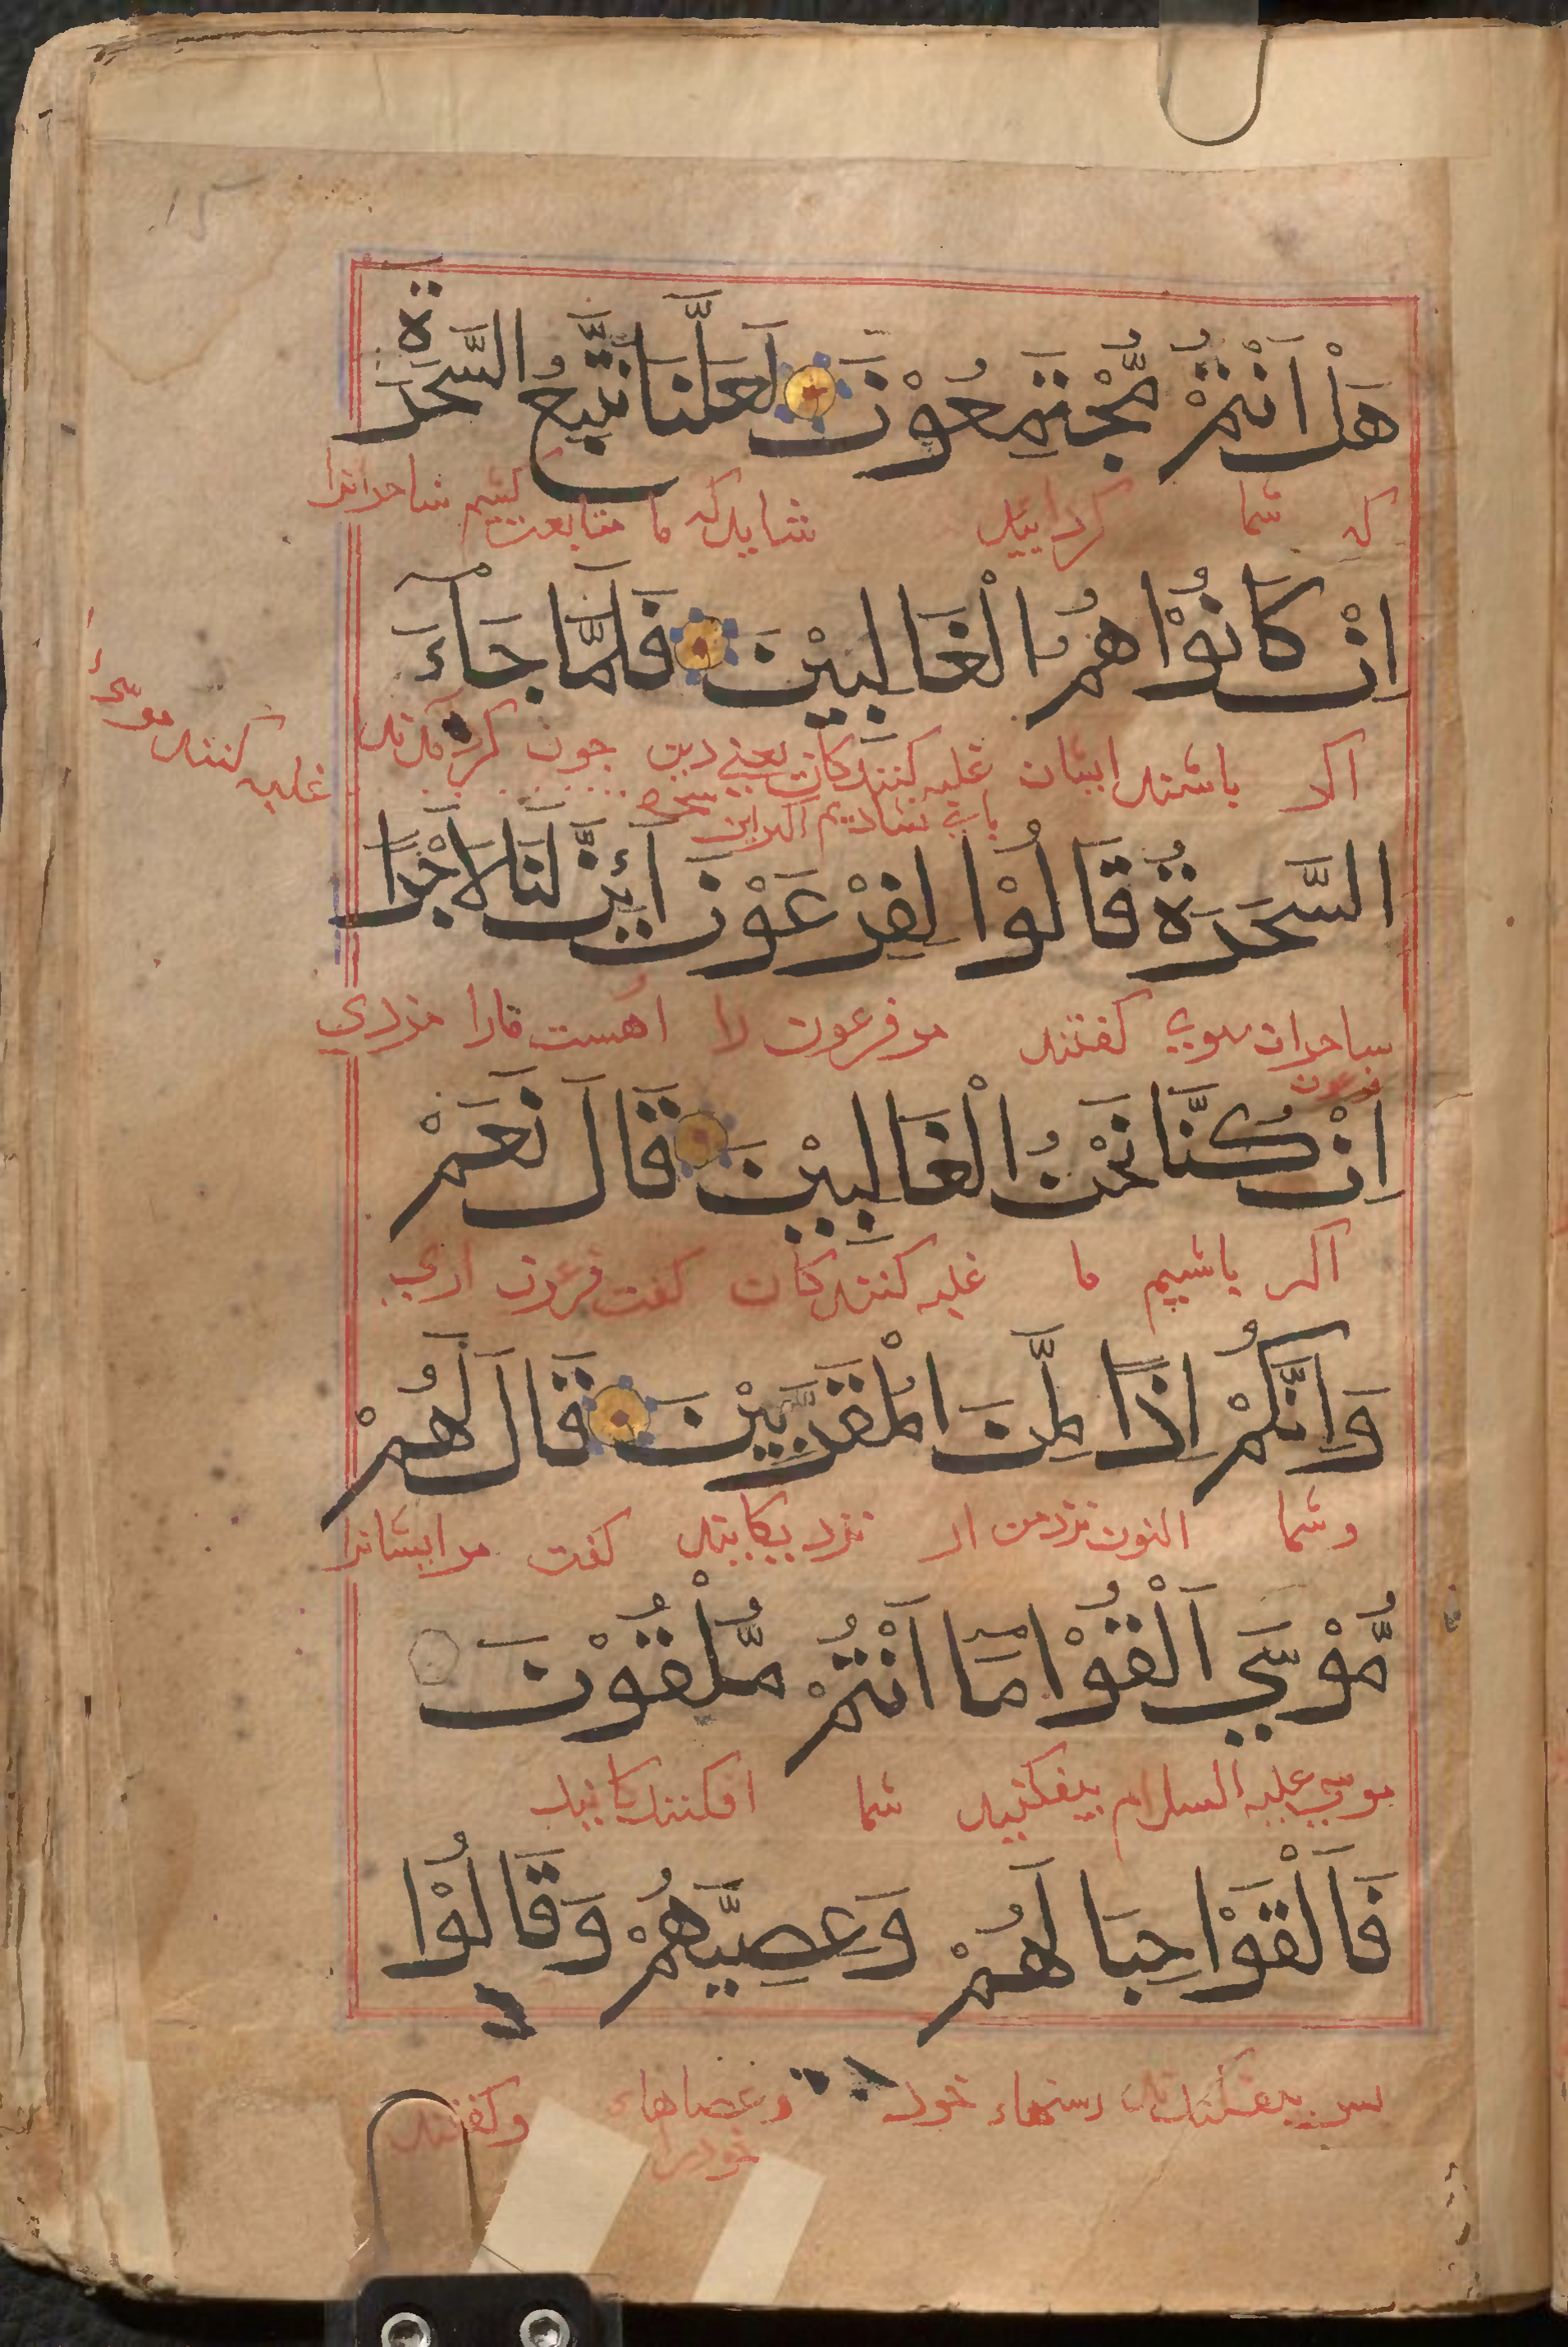 هَلْ اَنْتُمْ مُّجْتَمِعُوْنَ لَعَلَّنَا نَتَّبِعُ السَّحَرَةَ
که شما کردایید شاید که ما متابعت کنیم ساحرانرا
اِنْ كَانُوْا هُمُ الْغَالِبِيْنَ فَلَمَّا جَآءَ
اکر باشند ایشان غلبه کنندکان یعنی دین چون
غلبه کنند موسی
السَّحَرَةُ قَالُوْا لِفِرْعَوْنَ اَئِنَّ لَنَا لَاَجْرًا
ساحران سوی کفتند مر فرعون را اهست مارا مزدی
فرعون
اِنْ كُنَّا نَحْنُ الْغَالِبِيْنَ قَالَ نَعَمْ
اکر باشیم ما غلبه کنندکان کفت فرعون اری
وَاِنَّكُمْ اِذًا لَّمِنَ الْمُقَرَّبِيْنَ قَالَ لَهُمْ
وشما اکنون نزد من از نزدیکانید کفت مر ایشانرا
مُّوْسٰي اَلْقُوْا مَآ اَنْتُمْ مُّلْقُوْنَ
موسی علیه السلام بیفکنید شما افکنندکانید
فَاَلْقَوْا حِبَالَهُمْ وَعِصِيَّهُمْ وَقَالُوْا
پس بیفکندند رسنهاء خود وعصاهاء وکفتند
خودرا